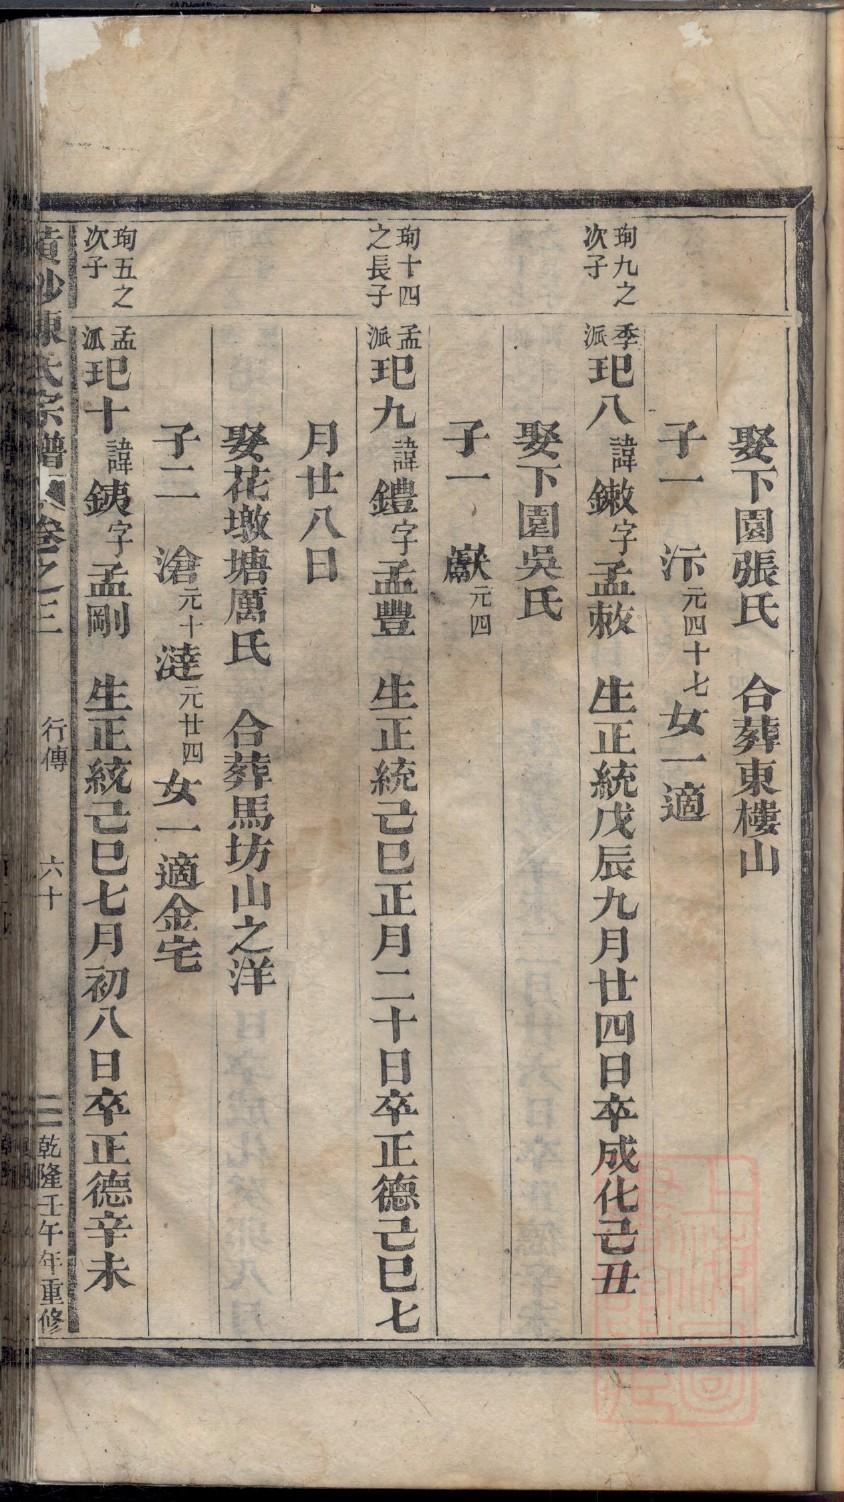 娶下園張氏　合葬東樓山
子一　沶元四十七女一適
珣九之次子
季派玘八諱鏉字孟敕　生正統戊辰九月廿四日卒成化己丑
娶下園吳氏
子一　獻元四
珣十四之長子
孟派玘九諱鐙字孟豐　生正統己巳正月二十日卒正德己巳七
月廿八日
娶花墩塘厲氏　合葬馬坊山之洋
子二　滄元十澾元廿四女一適金宅
珣五之次子
孟派玘十諱銕字孟剛　生正統己巳七月初八日卒正德辛未
黃沙陳氏宗譜　卷之三　行傳　六十　乾隆壬午年重修